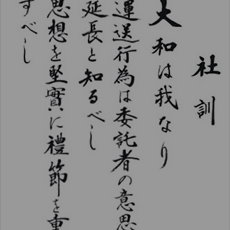 社訓
大和は我なり
運送行為は委託者の意思
延長と知るべし
思想を堅實に禮節を重
すべし